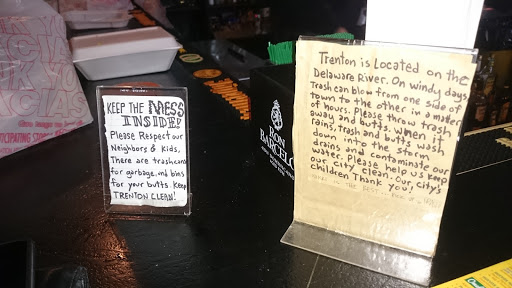 KEEP THE MESS
INSIDE!
Please Respect our
Neighbors & Kids,
There are trashcans
for garbage, and bins
for your butts. Keep
TRENTON CLEAN!
RON
BARCELO
Trenton is Located on the
Delaware River. On windy days
Trash can blow from one side of
town to the other in a matter
of hours. Please throw trash
away and butts. When it
rains, trash and butts wash
down into the storm
drains and contaminate our
water. Please help us keep
our city clean. Our city's
children Thank you!